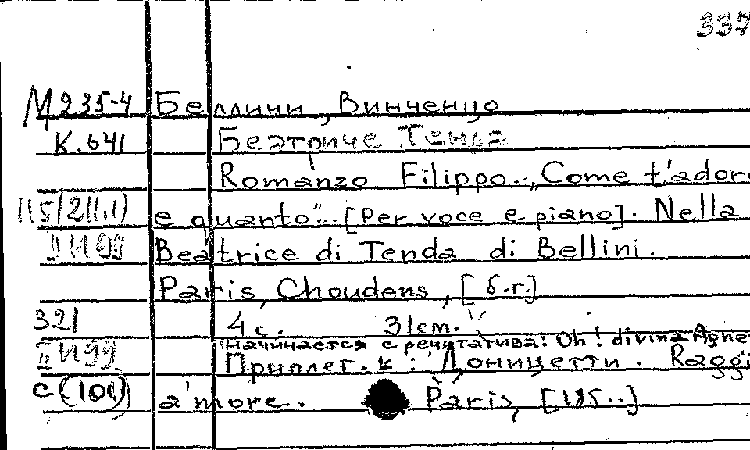 337
М 235-4 Беллини, Винченцо
К.641 Беатриче Тенда
Romanzo Filippo „Come t'ador
115/2(1.1) e quanto". [Per voce e piano]. Nella
II И 99 Beatrice di Tenda di Bellini.
Paris, Choudens, [б.г.]
321 4 с. 31см.
Начинается с речитатива: Oh! divina Agne
II И 99 Приплет. к: Доницетти. Raggi
с (101) a'more. Paris, [185..]